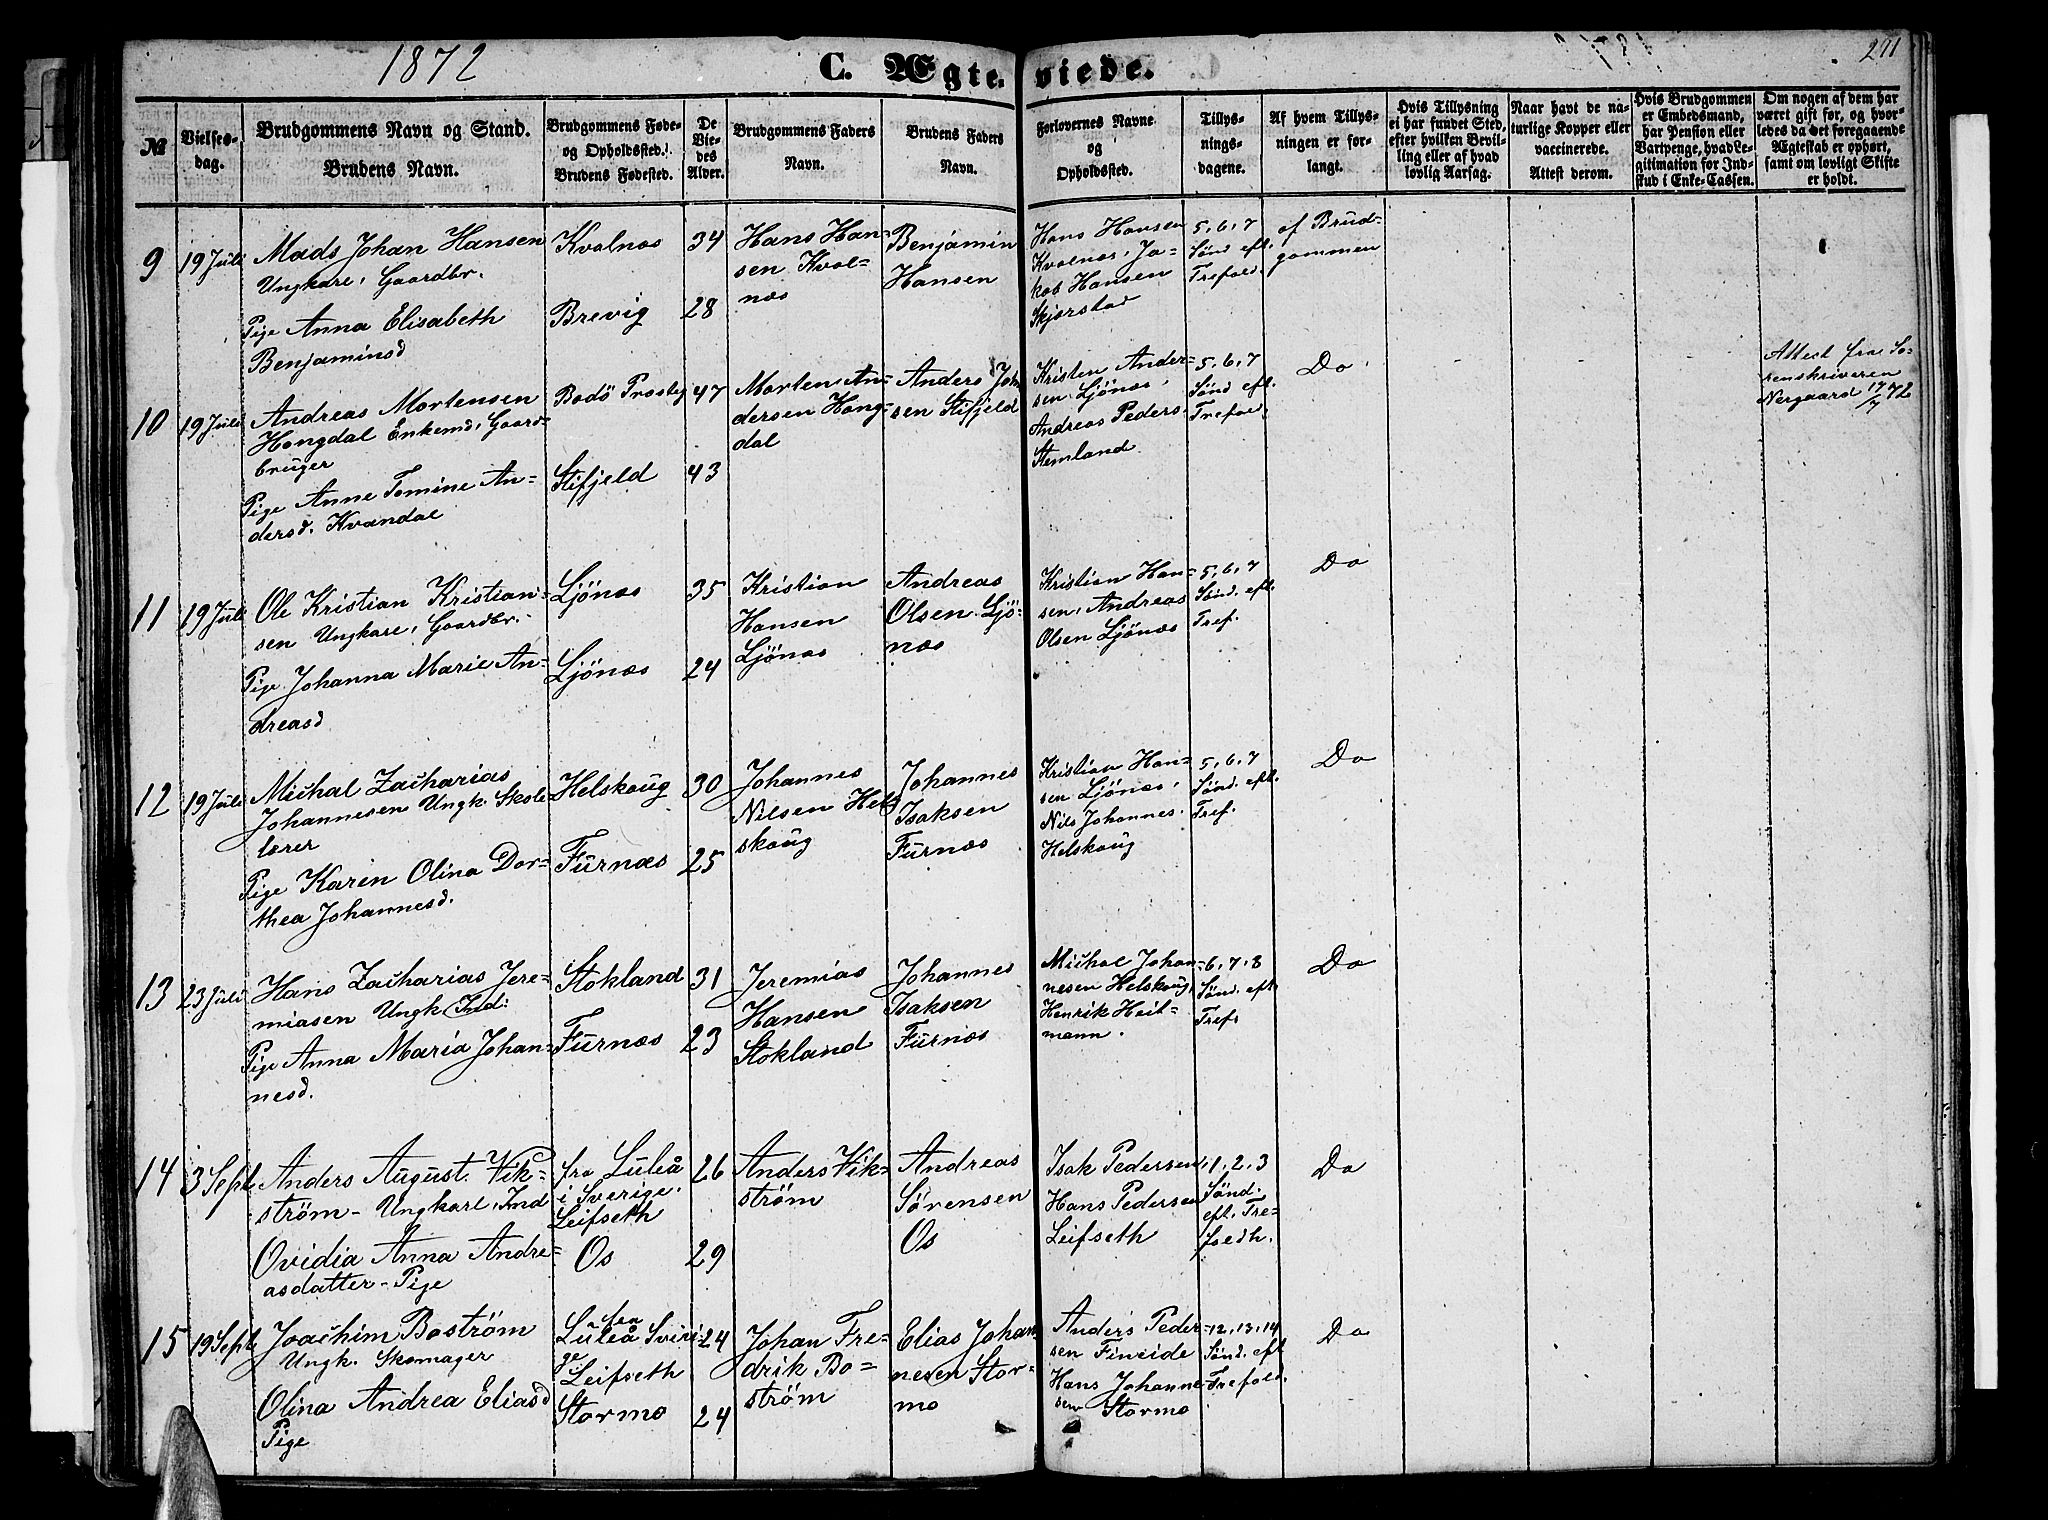 1872
C. Ægte-viede.
271
№
Vielses-
dag.
Brudgommens Navn og Stand.
Brudens Navn.
Brudgommens Føde-
og Opholdssted.
Brudens Fødested.
De
Vie-
des
Alder.
Brudgommens Faders
Navn.
Brudens Faders
Navn.
Forlovernes Navne
og
Opholdssted.
Tillys-
nings-
dagene.
Af hvem Tillys-
ningen er for-
langt.
Hvis Tillysning
ei har fundet Sted,
efter hvilken Bevil-
ling eller af hvad
lovlig Aarsag.
Naar havt de na-
turlige Kopper eller
vaccinerede.
Attest derom.
Hvis Brudgommen
er Embedsmand,
har Pension eller
Vartpenge, hvad Le-
gitimation for Ind-
skud i Enke-Cassen.
Om nogen af dem har
været gift før, og hvor-
ledes da det foregaaende
Ægteskab er ophørt,
samt om lovligt Skifte
er holdt.
9
19 Juli
Mads Johan Hansen
Ungkarl, Gaardbr.
Pige Anna Elisabeth
Benjaminsd
Kvalnæs
Brevig
34
28
Hans Han-
sen Kval-
næs
Benjamin
Hansen
Hans Hansen
Kvalnæs, Ja-
kob Hansen
Skjerstad
5, 6, 7
Sønd eft.
Trefold.
af Brud-
gommen
10
19 Juli
Andreas Mortensen
Hongdal Enkemd, Gaard-
bruger
Pige Anne Tomine An-
dersd. Kvandal
Bodö Prostegj
Stifjeld
47
43
Morten An-
dersen Hong-
dal
Anders Joh
sen Stifjeld
Kristen Ander-
sen Ljönæs,
Andreas Peders.
Stemland.
5, 6, 7
Sønd eft.
Trefold.
Do
Attest fra So-
renskriveren
Nergaard 17/7 72
11
19 Juli
Ole Kristian Kristian-
sen Ungkarl, Gaardbr.
Pige Johanna Marie An-
dreasd
Ljönæs
Ljönæs
35
24
Kristian
Hansen
Ljönæs
Andreas
Olsen Ljö-
næs
Kristian Han-
sen, Andreas
Olsen Ljönæs
5, 6, 7
Sønd. eft.
Tref.
Do
12
19 Juli
Michal Zacharias
Johannesen Ungk. Skole
lærer
Pige Karen Olina Dor-
thea Johannesd.
Helskoug
Furnæs
30
25
Johannes
Nilsen Hels
skoug
Johannes
Isaksen
Furnæs
Kristian Han-
sen Ljönæs,
Nils Johannes.
Helskoug
5, 6, 7
Sønd. eft.
Tref.
Do
13
23 Juli
Hans Zacharias Jere-
miasen Ungk. Ind:
Pige Anna Maria Johan-
nesd.
Stokland
Furnæs
31
23
Jeremias
Hansen
Stokland
Johannes
Isaksen
Furnæs
Michal Johan-
nesen Helskoug,
Henrik Heit-
mann.
6, 7, 8
Sønd. eft.
Tref.
Do
14
3 Sept
Anders August Vik-
ström - Ungkarl, Ind
Ovidia Anna Andre-
asdatter - Pige
fra Luleå
i Sverige.
Leifseth
Os
26
29
Anders Vik-
ström
Andreas
Sörensen
Os
Isak Pedersen,
Hans Pedersen
Leifseth
1, 2, 3
Sønd.
eft. Tre-
foldh.
Do
15
19 Sept
Joachim Boström
Ungk. Skomager
Olina Andrea Eliasd
Pige
Luleå Sveri-
ge
Leifseth
Stormo
24
24
Johan Fre-
drik Bo-
ström
Elias Johan
nesen Stor-
mo
Anders Peder-
sen Fineide
Hans Johanne-
sen Stormo
12, 13, 14
Sønd. eft
Trefold.
Do